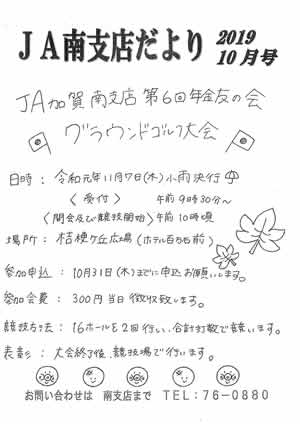 JA南支店だより 2019 10月号
JA加賀 南支店 第6回 年金友の会
グラウンドゴルフ大会
日時 : 令和元年11月7日(木) 小雨決行
〈受付〉 午前9時30分~
〈開会及び競技開始〉 午前10時頃
場所 : 桔梗ヶ丘広場 (ホテル百万石前)
参加申込 : 10月31日(木)までに申込お願いします。
参加会費 : 300円 当日徴収致します。
競技方法 : 16ホールを2回行い、合計打数で競います。
表彰 : 大会終了後、競技場で行います。
お問い合わせは 南支店まで TEL:76-0880